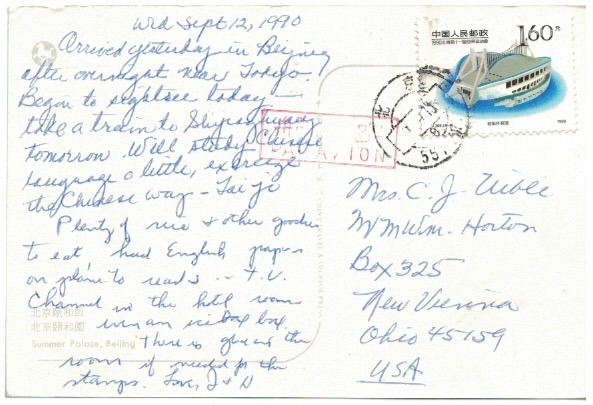 Wed Sept 12, 1990
Arrived yesterday in Beijing
after overnight near Tokyo.
Began to sightsee today —
take a train to
tomorrow. Will study Chinese
language a little, exercise
the Chinese way — Tai Ji
Plenty of rice & other goodies
to eat, had English papers
on plane to read — T.V.
Channel in the hotel room
even an
There is glue in the
room if needed for the
stamps. Love, J & D
北京颐和园
北京頤和園
Summer Palace, Beijing
中国人民邮政
160
元
1989
北
京
557
PAR AVION
Mrs. C. J. Uible
Wm. Horton
Box 325
New Vienna
Ohio 45159
USA